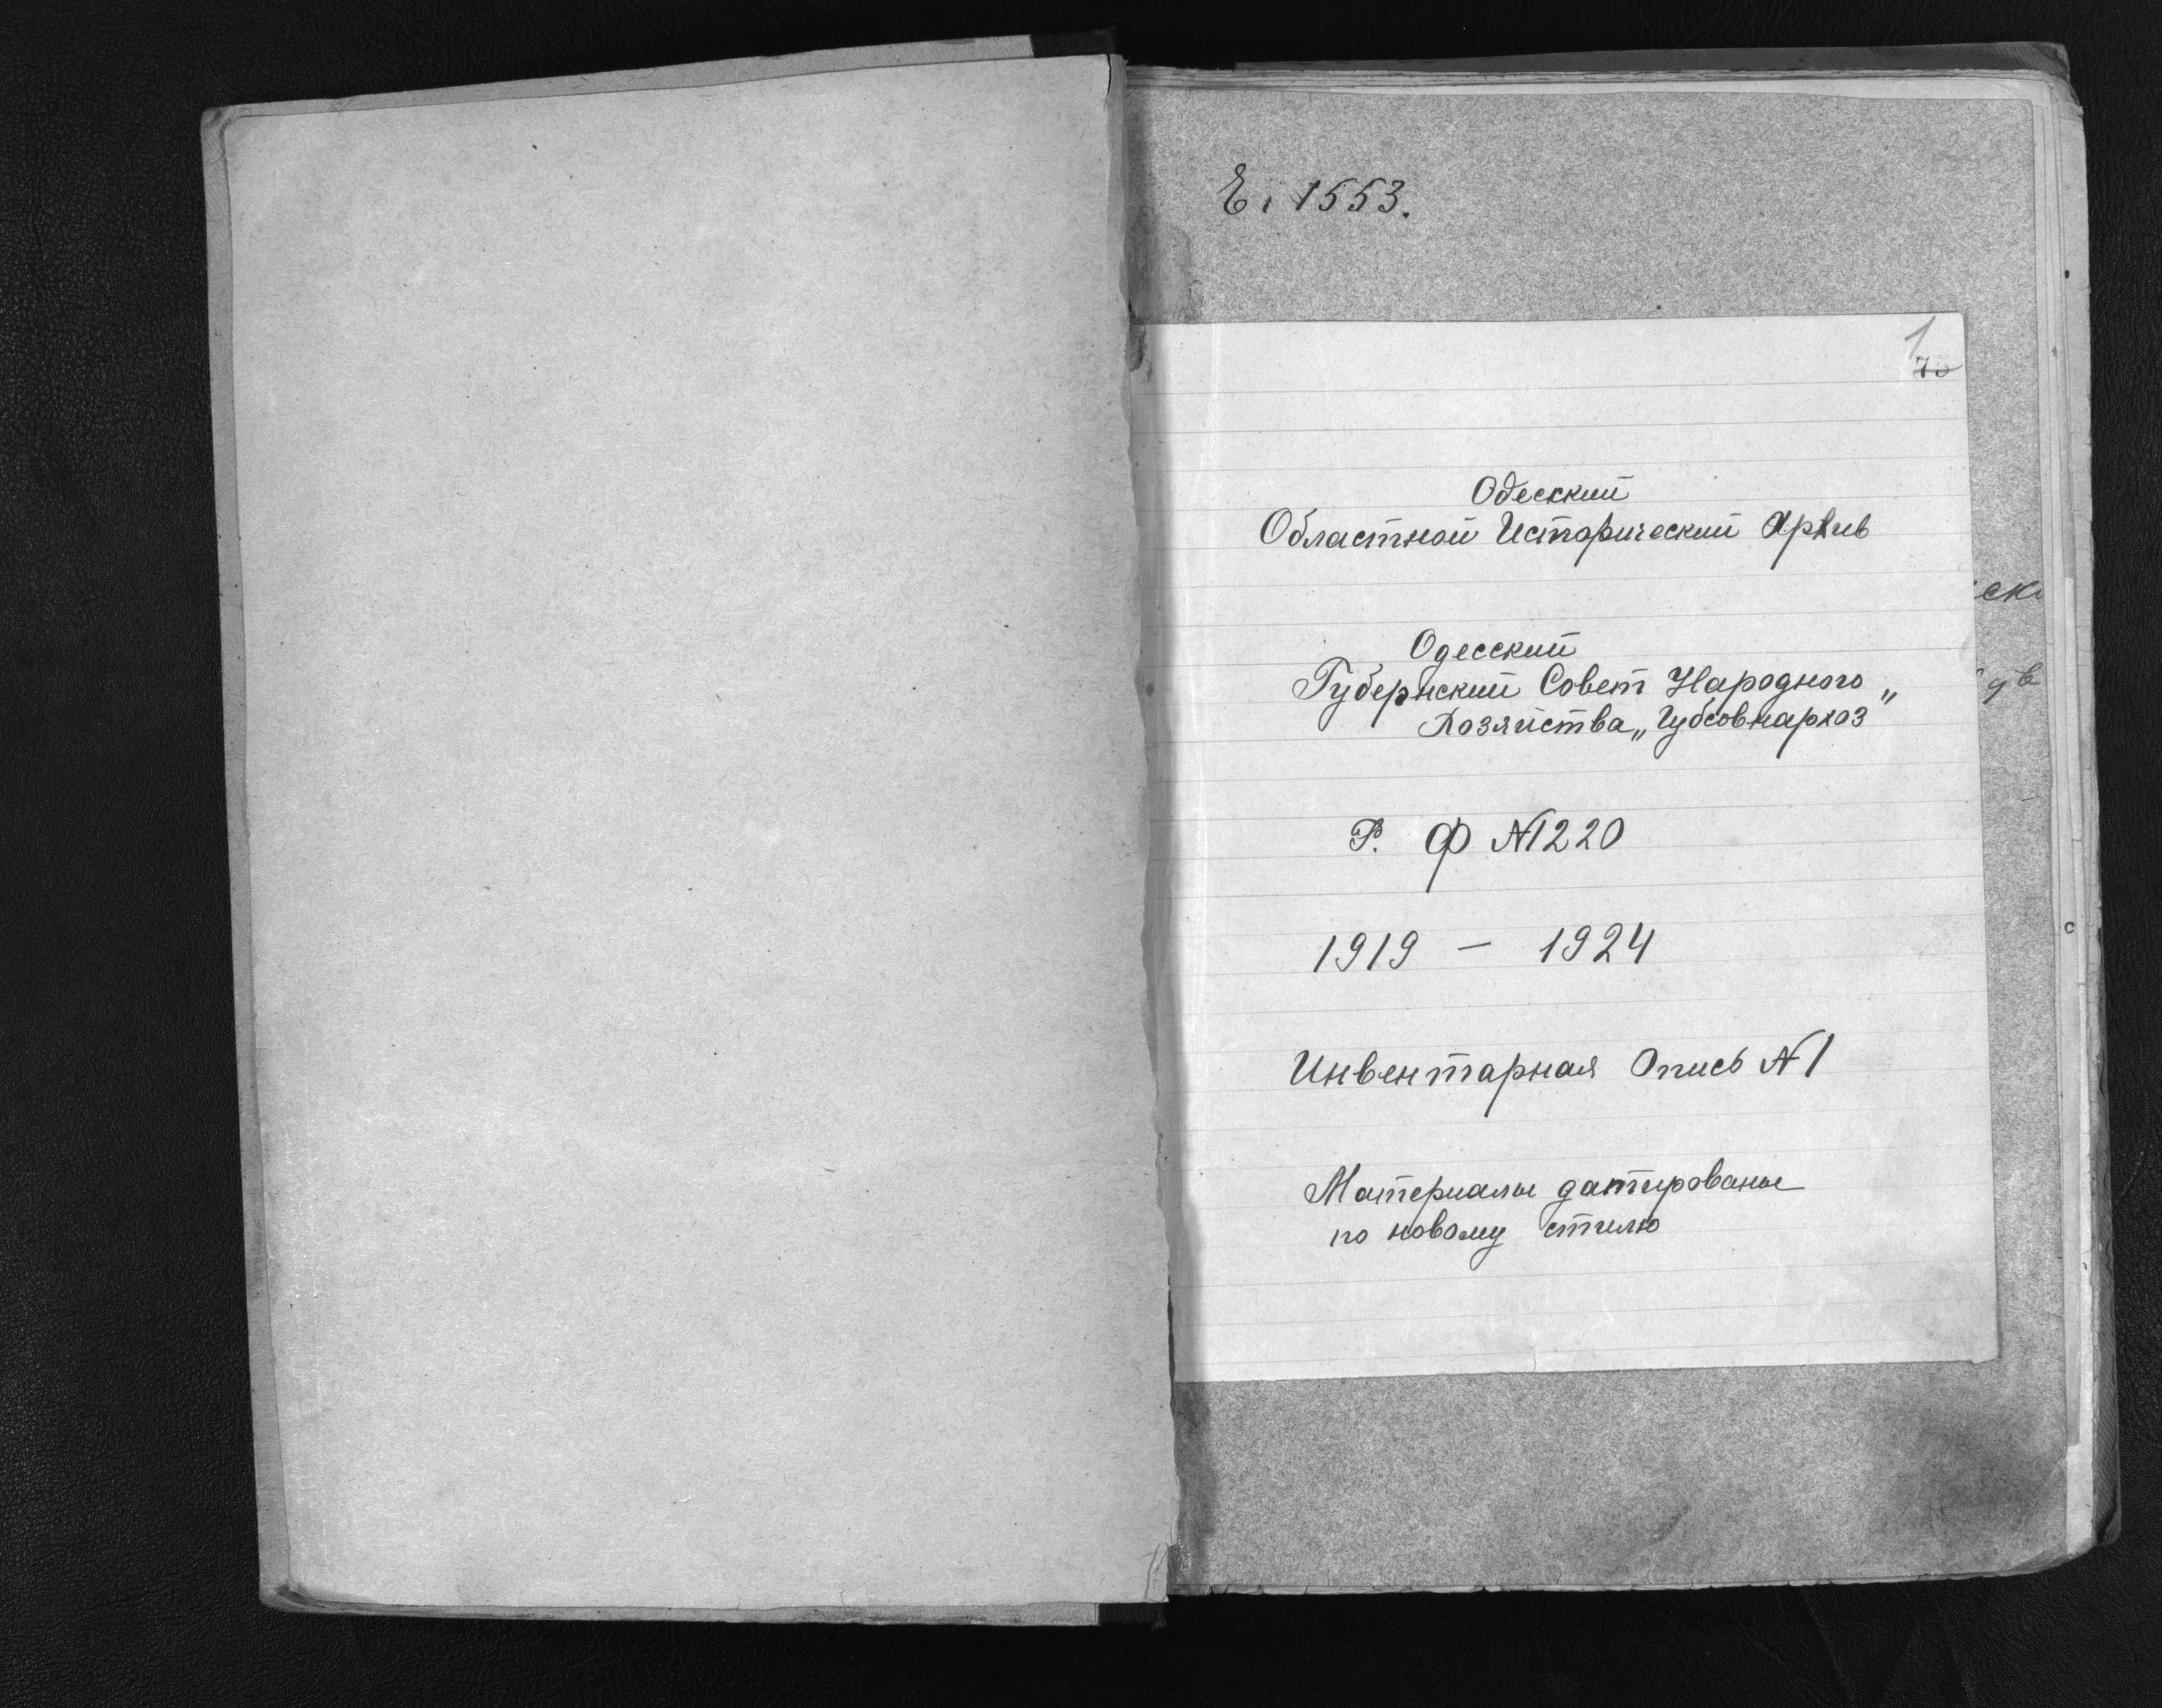 Е. 1553.
1
Одесский
Областной Исторический Архив
Одесский
Губернский Совет Народного
Хозяйства „Губсовнархоз"
Р. Ф N1220
1919 – 1924
Инвентарная Опись N1
Материалы датированы
по новому стилю